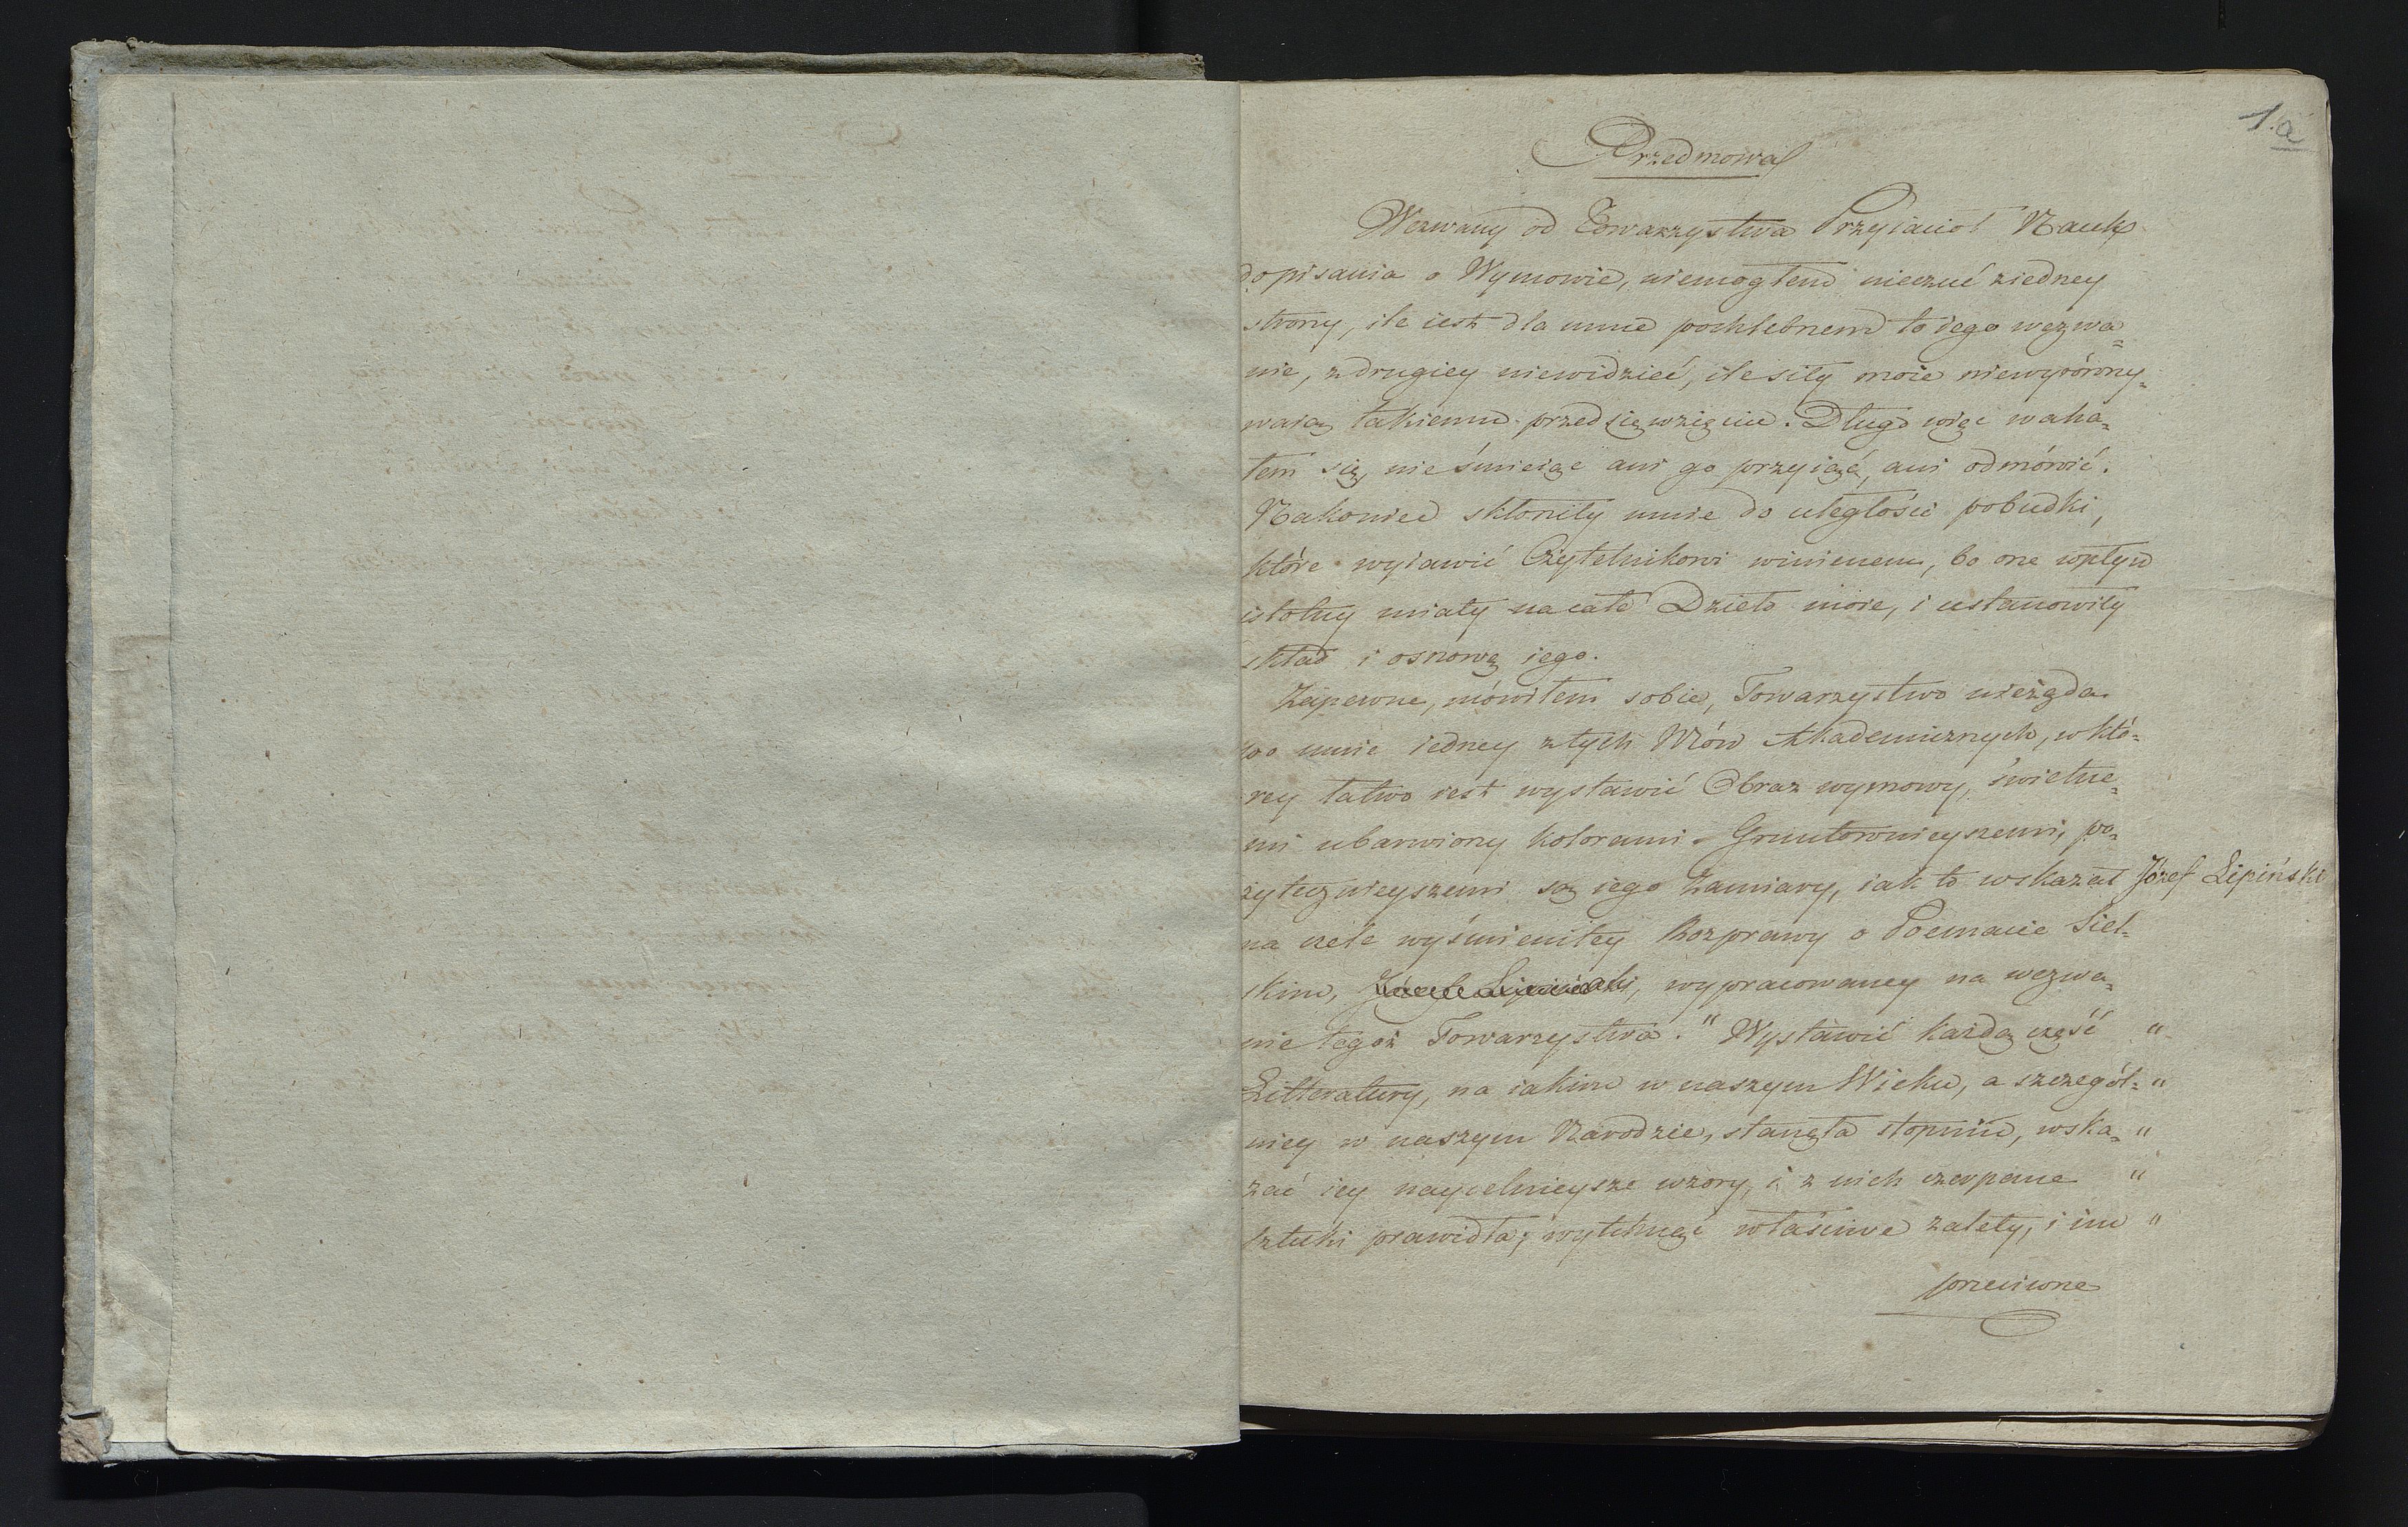 1.a
Przedmowa
Wezwany od Towarzystwa Przyiacioł Nauk
do pisania o Wymowie, niemogłem nieczuć ziedney
strony, ile iest dla mnie pochlebnem to iego wezwa=
nie, zdrugiey niewidzieć, ile siły moie niewyrówny=
waią takiemu przedsięwzięciu. Długo więc waha=
łem się, nieśmieiąc ani go przyiąć, ani odmówić.
Nakoniec skłoniły mnie do uległości pobudki,
które wyiawić Czytelnikowi winienem, bo one wpływ
istotny miały na całe Dzieło moie, i ustanowiły
skład i osnowę iego.
Zapewne, mówiłem sobie, Towarzystwo nieżąda
po mnie iedney z tych Mów Akademicznych, w któ=
rey łatwo iest wystawić Obraz wymowy, świetne=
mi ubarwiony kolorami. Gruntownieyszemi, po=
żytecznieyszemi są iego zamiary, iak to wskazał Józef Lipiński
na czele wyśmienitey Rozprawy o Poemacie Siel=
skim, Józef Lipiński, wypracowaney na wezwa=
nie tegoż Towarzystwa. " Wystawić każdą część "
Litteratury, na iakim w naszym Wieku, a szczegól= "
niey w naszym Narodzie, stanęła stopniu, wska= "
zać iey naycelnieysze wzory, i z nich czerpane "
sztuki prawidła; wytknąć właściwe zalety, i im "
przeciwne